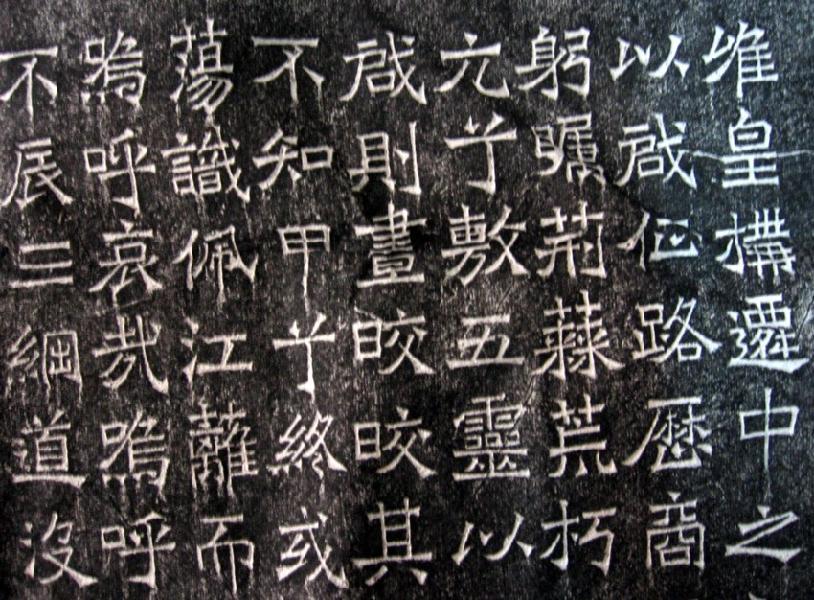 惟皇構遷中之
以啟伍路歷商
躬矚荊蕀荒朽
元兮敷五靈以
啟則晝皎皎其
不知甲兮終或
蕩識佩江蘺而
嗚呼哀哉嗚呼
不辰三綱道沒